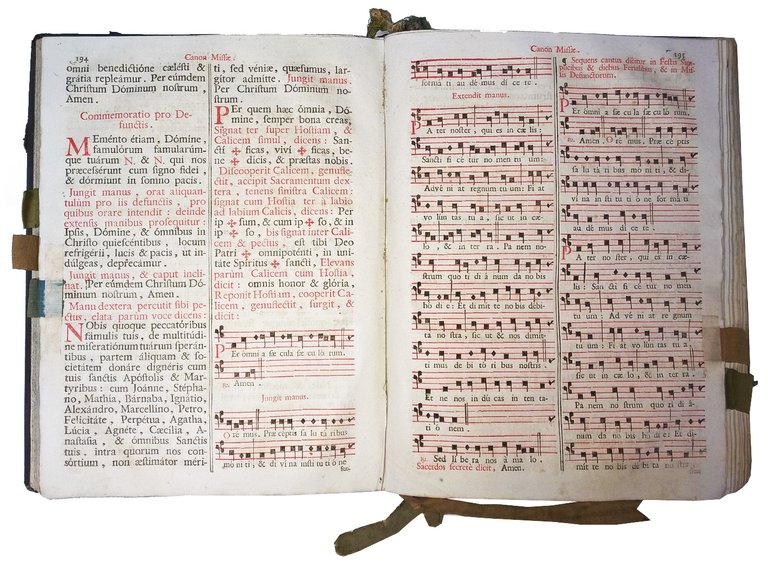 194
Canon Missæ.
omni benedictióne cælésti &
grátia repleámur. Per eúmdem
Christum Dóminum nostrum,
Amen.
Commemoratio pro De-
functis.
MEménto étiam, Dómine,
famulórum famularúm-
que tuárum N. & N. qui nos
præcesérunt cum signo fidei,
& dórmiunt in somno pacis.
Jungit manus, orat aliquan-
tulúm pro iis defunctis, pro
quibus orare intendit: deinde
extensis manibus prosequitur:
Ipsis, Dómine, & ómnibus in
Christo quiescéntibus, locum
refrigérii, lucis & pacis, ut in-
dúlgeas, deprecámur.
Jungit manus, & caput incli-
nat. Per eúmdem Christum Dó-
minum nostrum, Amen.
Manu dextera percutit sibi pe-
ctus, elata parùm voce dicens:
NObis quoque peccatóribus
fámulis tuis, de multitúdi-
ne miseratiónum tuárum sperán-
tibus, partem áliquam & so-
cietátem donáre dignéris cum
tuis sanctis Apóstolis & Mar-
tyribus: cum Joánne, Stépha-
no, Mathia, Bárnaba, Ignátio,
Alexándro, Marcellíno, Petro,
Felicitáte, Perpétua, Agatha,
Lúcia, Agnéte, Cæcília, A-
nastásia, & ómnibus Sanctis
tuis. intra quorum nos con-
sórtium, non æstimátor méri-
ti, sed véniæ, quæsumus, lar-
gítor admitte. Jungit manus.
Per Christum Dóminum no-
strum.
PEr quem hæc ómnia, Dó-
mine, semper bona creas,
Signat ter super Hostiam, &
Calicem simul, dicens: San-
cti ✠ ficas, viví ✠ ficas, be-
ne ✠ dicis, & præstas nobis.
Discooperit Calicem, genufle-
ctit, accipit Sacramentum dex-
tera, tenens sinistra Calicem:
signat cum Hostia ter à labio
ad labium Calicis, dicens: Per
ip ✠ sum, & cum ip ✠ so, & in
ip ✠ so, bis signat inter Cali-
cem & pectus, est tibi Deo
Patri ✠ omnipoténti, in uni-
táte Spíritus ✠ sancti, Elevans
parùm Calicem cum Hostia,
dicit: omnis honor & glória,
Reponit Hostiam, cooperit Ca-
licem, genuflectit, surgit, &
dicit:
PEr ómni a sæ cula sæ cu ló rum.
℟. Amen.
Jungit manus.
O ré mus. Præ céptis sa lu tá ribus
mó ni ti, & di ví na insti tu ti ó ne
for-
Canon Missæ.
195
formá ti au dé mus dí ce re.
Extendit manus.
PA ter noster, qui es in cæ lis:
Sancti fi cé tur no men tu um:
Advé ni at regnum tu um: Fi at
vo lún tas tu a, sic ut in cæ-
lo, & in ter ra. Pa nem no-
strum quo ti di á num da nobis
hó di e: Et di mít te no bis débi-
ta no stra, sic ut & nos dimít-
ti mus de bi tó ri bus nostris.
Et ne nos in dú cas in ten ta-
ti ó nem.
℟. Sed lí be ra nos à ma lo.
Sacerdos secretè dicit, Amen.
¶ Sequens cantus dicitur in Festis Sim-
plicibus & diebus Ferialibus, & in Mis-
sis Defunctorum.
PEr ómni a sæ cu la sæ cu ló rum.
Amen, O ré mus. Præ cé ptis
sa lu tá ri bus mó ni ti, & di-
ví na in sti tu ti ó ne for má ti
au dé mus dí ce re.
PA ter no ster, qui es in cæ-
lis: San cti fi cé tur no men
tu um: Ad vé ni at re gnum
tu um: Fi at vo lún tas tu a,
sic ut in cæ lo, & in ter ra.
Pa nem no strum quo ti di á-
num da no bis hó di e: Et di-
mít te no bis dé bi ta no stra